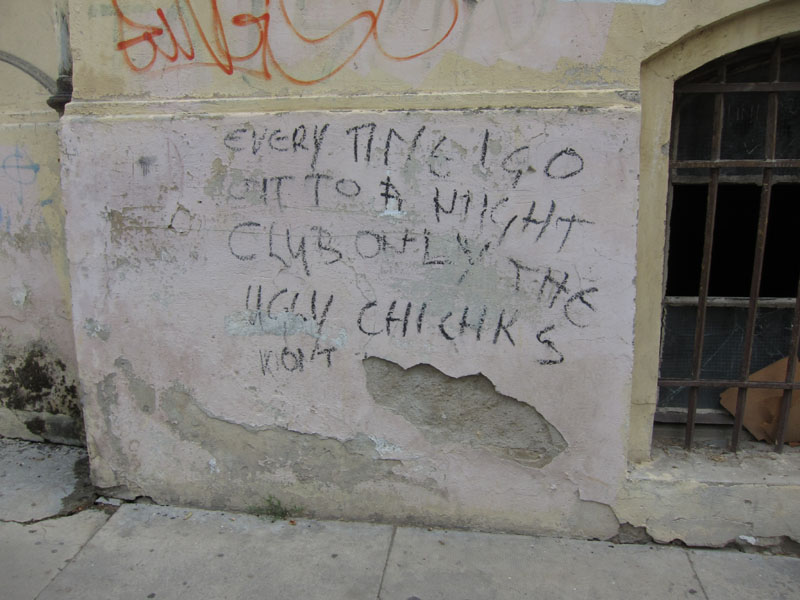 EVERY TIME I GO
OUT TO A NIGHT
CLUB ONLY THE
UGLY CHICHKS